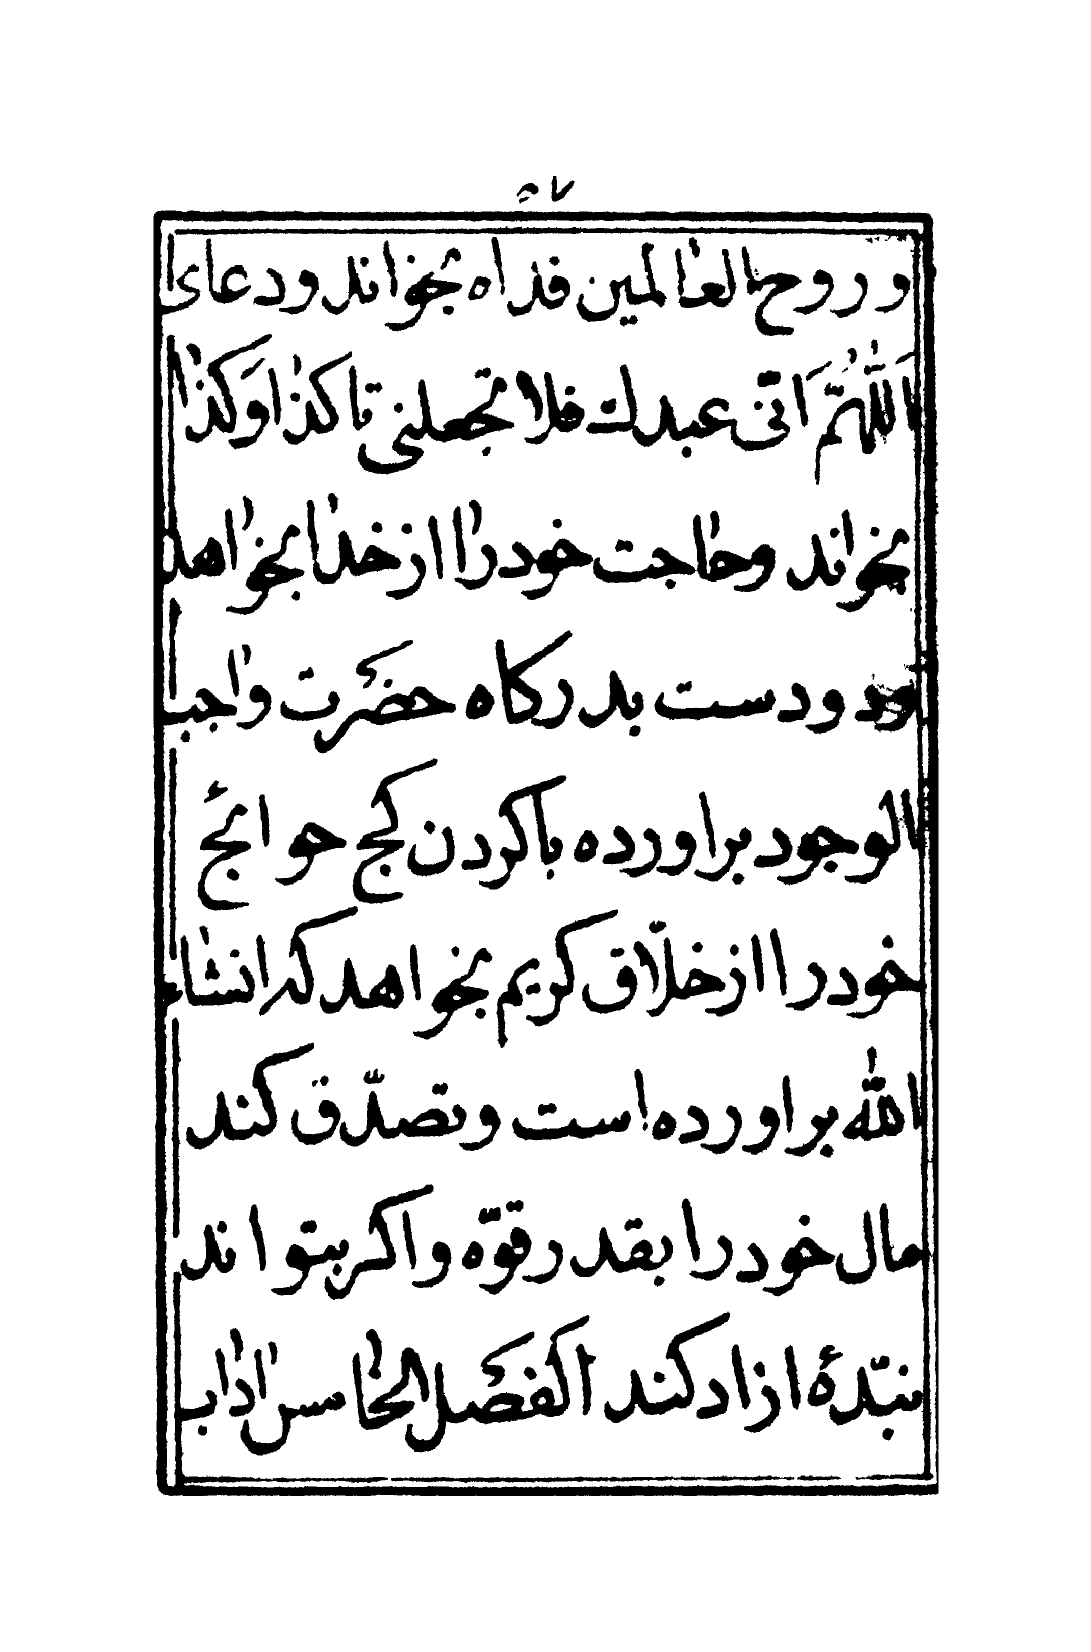 و روح العالمین فداه بخواند و دعای
اَللّٰهُمَّ اَنّی عبدك فلا تجعلنی تا کذا وَ کَذا
بخواند و حاجت خود را از خدا بخواهد
و دست بدرکاه حضرت واجب
الوجود براورده با کردن کج حوائج
خود را از خلّاق کریم بخواهد که انشاء
الله براورده است و تصدّق کند
مال خود را بقدر قوّه و اکر بتواند
بندهٔ ازاد کند الفصل الخامس اداب